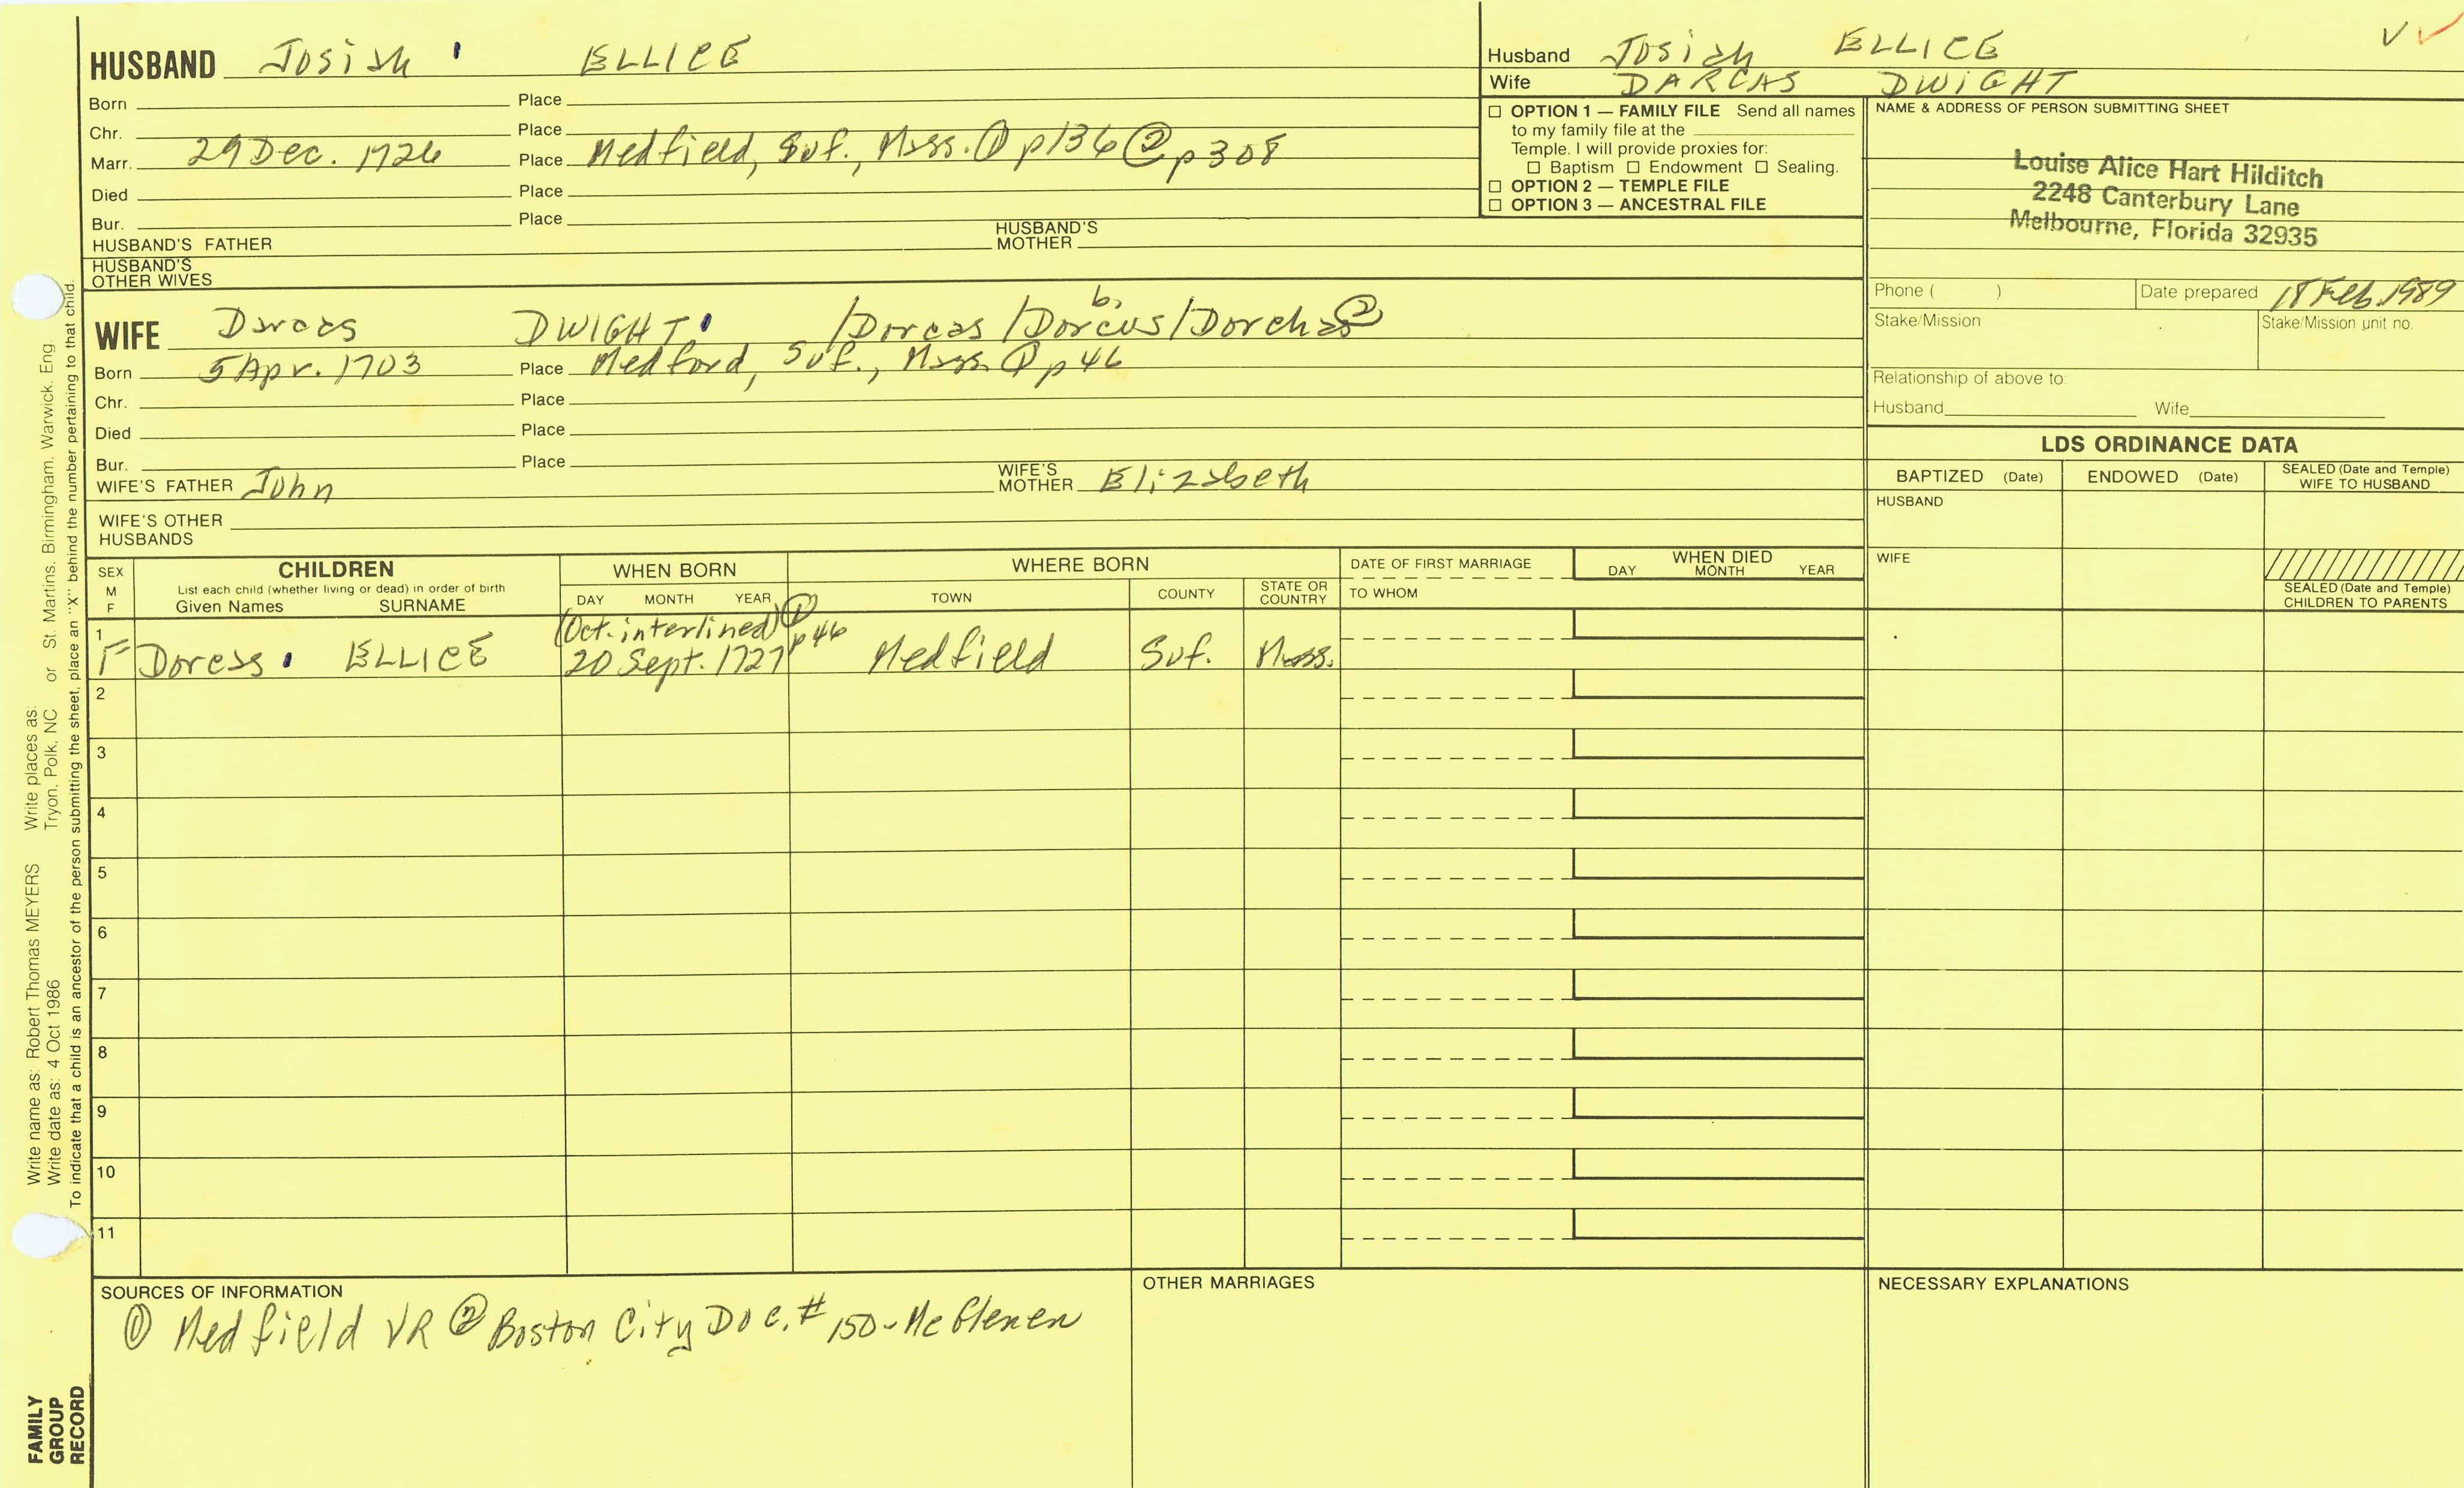 HUSBAND Josiah ELLICE
Born Place
Chr. Place
Marr. 29 Dec. 1726 Place Medfield, Suf., Mass. ① p136 ② p308
Died Place
Bur. Place
HUSBAND'S FATHER HUSBAND'S MOTHER
HUSBAND'S OTHER WIVES
Husband Josiah ELLICE
Wife DARCAS DWIGHT
☐ OPTION 1 — FAMILY FILE Send all names
to my family file at the
Temple. I will provide proxies for:
☐ Baptism ☐ Endowment ☐ Sealing.
☐ OPTION 2 — TEMPLE FILE
☐ OPTION 3 — ANCESTRAL FILE
NAME & ADDRESS OF PERSON SUBMITTING SHEET
Louise Alice Hart Hilditch
2248 Canterbury Lane
Melbourne, Florida 32935
Phone ( ) Date prepared 18 Feb. 1989
Stake/Mission Stake/Mission unit no.
Relationship of above to:
Husband Wife
b.
WIFE Darcas DWIGHT /Dorcas /Dorcus/Dorchas ②
Born 5 Apr. 1703 Place Medford, Suf., Mass. ① p46
Chr. Place
Died Place
Bur. Place
WIFE'S FATHER John WIFE'S MOTHER Elizabeth
WIFE'S OTHER
HUSBANDS
LDS ORDINANCE DATA
BAPTIZED (Date) ENDOWED (Date) SEALED (Date and Temple) WIFE TO HUSBAND
HUSBAND
WIFE
SEALED (Date and Temple)
CHILDREN TO PARENTS
SEX M F
CHILDREN
List each child (whether living or dead) in order of birth
Given Names SURNAME
WHEN BORN
DAY MONTH YEAR
WHERE BORN
TOWN COUNTY STATE OR COUNTRY
DATE OF FIRST MARRIAGE
TO WHOM
WHEN DIED
DAY MONTH YEAR
(Oct. interlined) ① p46
1 F Doress ELLICE 20 Sept. 1727 Medfield Suf. Mass.
2
3
4
5
6
7
8
9
10
11
SOURCES OF INFORMATION
① Medfield VR ② Boston City Doc. # 150 - McGlenen
OTHER MARRIAGES
NECESSARY EXPLANATIONS
Write name as: Robert Thomas MEYERS Write places as:
Write date as: 4 Oct 1986 Tryon, Polk, NC or St. Martins, Birmingham, Warwick, Eng.
To indicate that a child is an ancestor of the person submitting the sheet, place an "X" behind the number pertaining to that child.
FAMILY
GROUP
RECORD